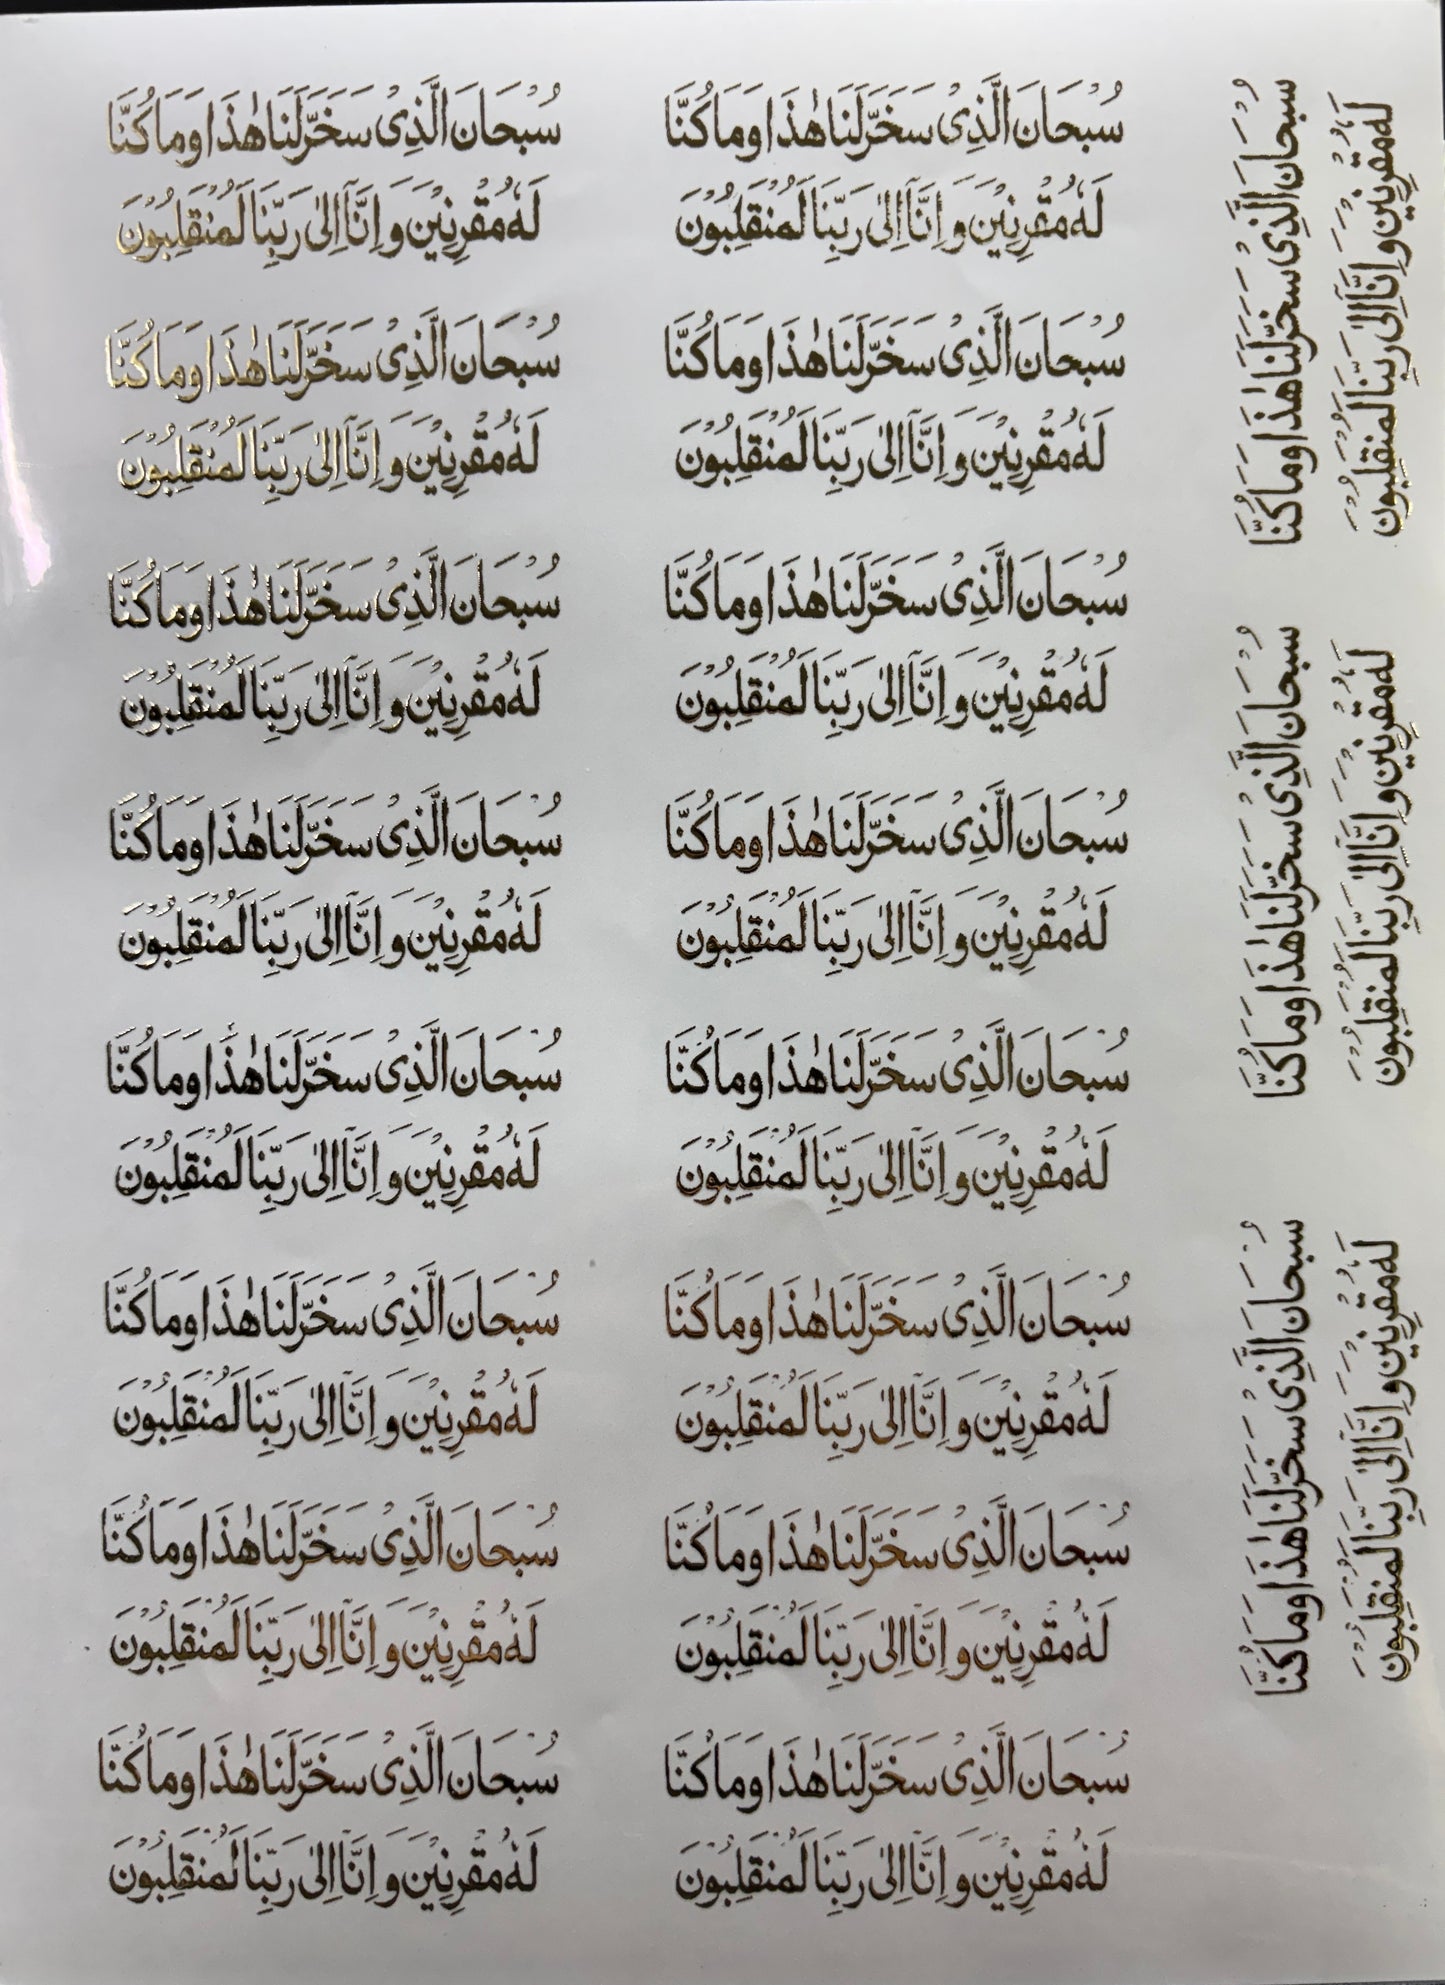 سُبْحَانَ الَّذِیْ سَخَّرَ لَنَا هٰذَا وَمَا كُنَّا
لَهٗ مُقْرِنِیْنَ وَ اِنَّاۤ اِلٰی رَبِّنَا لَمُنْقَلِبُوْنَ
سُبْحَانَ الَّذِیْ سَخَّرَ لَنَا هٰذَا وَمَا كُنَّا
لَهٗ مُقْرِنِیْنَ وَ اِنَّاۤ اِلٰی رَبِّنَا لَمُنْقَلِبُوْنَ
سُبْحَانَ الَّذِیْ سَخَّرَ لَنَا هٰذَا وَمَا كُنَّا
لَهٗ مُقْرِنِیْنَ وَ اِنَّاۤ اِلٰی رَبِّنَا لَمُنْقَلِبُوْنَ
سُبْحَانَ الَّذِیْ سَخَّرَ لَنَا هٰذَا وَمَا كُنَّا
لَهٗ مُقْرِنِیْنَ وَ اِنَّاۤ اِلٰی رَبِّنَا لَمُنْقَلِبُوْنَ
سُبْحَانَ الَّذِیْ سَخَّرَ لَنَا هٰذَا وَمَا كُنَّا
لَهٗ مُقْرِنِیْنَ وَ اِنَّاۤ اِلٰی رَبِّنَا لَمُنْقَلِبُوْنَ
سُبْحَانَ الَّذِیْ سَخَّرَ لَنَا هٰذَا وَمَا كُنَّا
لَهٗ مُقْرِنِیْنَ وَ اِنَّاۤ اِلٰی رَبِّنَا لَمُنْقَلِبُوْنَ
سُبْحَانَ الَّذِیْ سَخَّرَ لَنَا هٰذَا وَمَا كُنَّا
لَهٗ مُقْرِنِیْنَ وَ اِنَّاۤ اِلٰی رَبِّنَا لَمُنْقَلِبُوْنَ
سُبْحَانَ الَّذِیْ سَخَّرَ لَنَا هٰذَا وَمَا كُنَّا
لَهٗ مُقْرِنِیْنَ وَ اِنَّاۤ اِلٰی رَبِّنَا لَمُنْقَلِبُوْنَ
سُبْحَانَ الَّذِیْ سَخَّرَ لَنَا هٰذَا وَمَا كُنَّا
لَهٗ مُقْرِنِیْنَ وَ اِنَّاۤ اِلٰی رَبِّنَا لَمُنْقَلِبُوْنَ
سُبْحَانَ الَّذِیْ سَخَّرَ لَنَا هٰذَا وَمَا كُنَّا
لَهٗ مُقْرِنِیْنَ وَ اِنَّاۤ اِلٰی رَبِّنَا لَمُنْقَلِبُوْنَ
سُبْحَانَ الَّذِیْ سَخَّرَ لَنَا هٰذَا وَمَا كُنَّا
لَهٗ مُقْرِنِیْنَ وَ اِنَّاۤ اِلٰی رَبِّنَا لَمُنْقَلِبُوْنَ
سُبْحَانَ الَّذِیْ سَخَّرَ لَنَا هٰذَا وَمَا كُنَّا
لَهٗ مُقْرِنِیْنَ وَ اِنَّاۤ اِلٰی رَبِّنَا لَمُنْقَلِبُوْنَ
سُبْحَانَ الَّذِیْ سَخَّرَ لَنَا هٰذَا وَمَا كُنَّا
لَهٗ مُقْرِنِیْنَ وَ اِنَّاۤ اِلٰی رَبِّنَا لَمُنْقَلِبُوْنَ
سُبْحَانَ الَّذِیْ سَخَّرَ لَنَا هٰذَا وَمَا كُنَّا
لَهٗ مُقْرِنِیْنَ وَ اِنَّاۤ اِلٰی رَبِّنَا لَمُنْقَلِبُوْنَ
سُبْحَانَ الَّذِیْ سَخَّرَ لَنَا هٰذَا وَمَا كُنَّا
لَهٗ مُقْرِنِیْنَ وَ اِنَّاۤ اِلٰی رَبِّنَا لَمُنْقَلِبُوْنَ
سُبْحَانَ الَّذِیْ سَخَّرَ لَنَا هٰذَا وَمَا كُنَّا
لَهٗ مُقْرِنِیْنَ وَ اِنَّاۤ اِلٰی رَبِّنَا لَمُنْقَلِبُوْنَ
سُبْحَانَ الَّذِیْ سَخَّرَ لَنَا هٰذَا وَمَا كُنَّا
لَهٗ مُقْرِنِیْنَ وَ اِنَّاۤ اِلٰی رَبِّنَا لَمُنْقَلِبُوْنَ
سُبْحَانَ الَّذِیْ سَخَّرَ لَنَا هٰذَا وَمَا كُنَّا
لَهٗ مُقْرِنِیْنَ وَ اِنَّاۤ اِلٰی رَبِّنَا لَمُنْقَلِبُوْنَ
سُبْحَانَ الَّذِیْ سَخَّرَ لَنَا هٰذَا وَمَا كُنَّا
لَهٗ مُقْرِنِیْنَ وَ اِنَّاۤ اِلٰی رَبِّنَا لَمُنْقَلِبُوْنَ